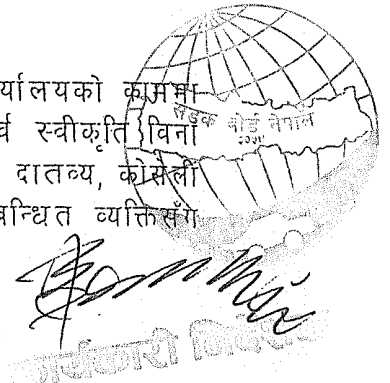 र्यालयको काममा
र्व स्वीकृति विना
दातव्य, कोसेली
बन्धित व्यक्तिसँग
सडक बोर्ड नेपाल
कार्यकारी निर्देशक